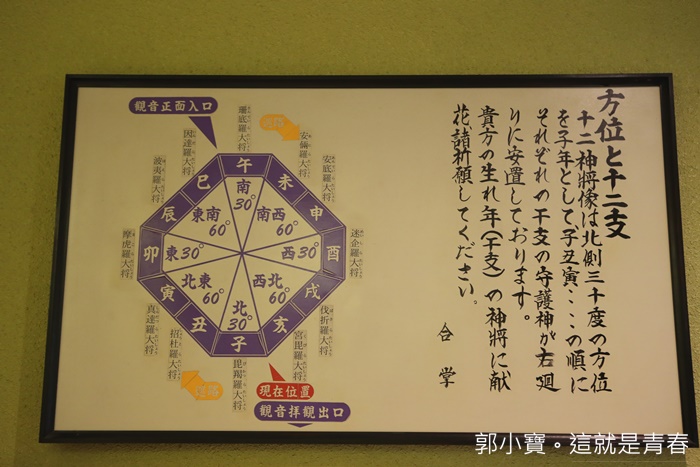 方位と十二支
十二神将像は北側三十度の方位
を子年として、子丑寅・・・の順に
それぞれの干支の守護神が右廻
りに安置しております。
貴方の生れ年(干支)の神将に献
花諸祈願してください。
合掌
觀音正面入口
珊底羅大将
因達羅大将
安儞羅大将
波夷羅大将
安底羅大将
摩虎羅大将
迷企羅大将
真達羅大将
伐折羅大将
招杜羅大将
宮毘羅大将
毘羯羅大将
午
未
申
酉
戌
亥
子
丑
寅
卯
辰
巳
南30°
南西60°
西30°
西北60°
北30°
北東60°
東30°
東南60°
現在位置
觀音拝観出口
郭小寶。這就是青春